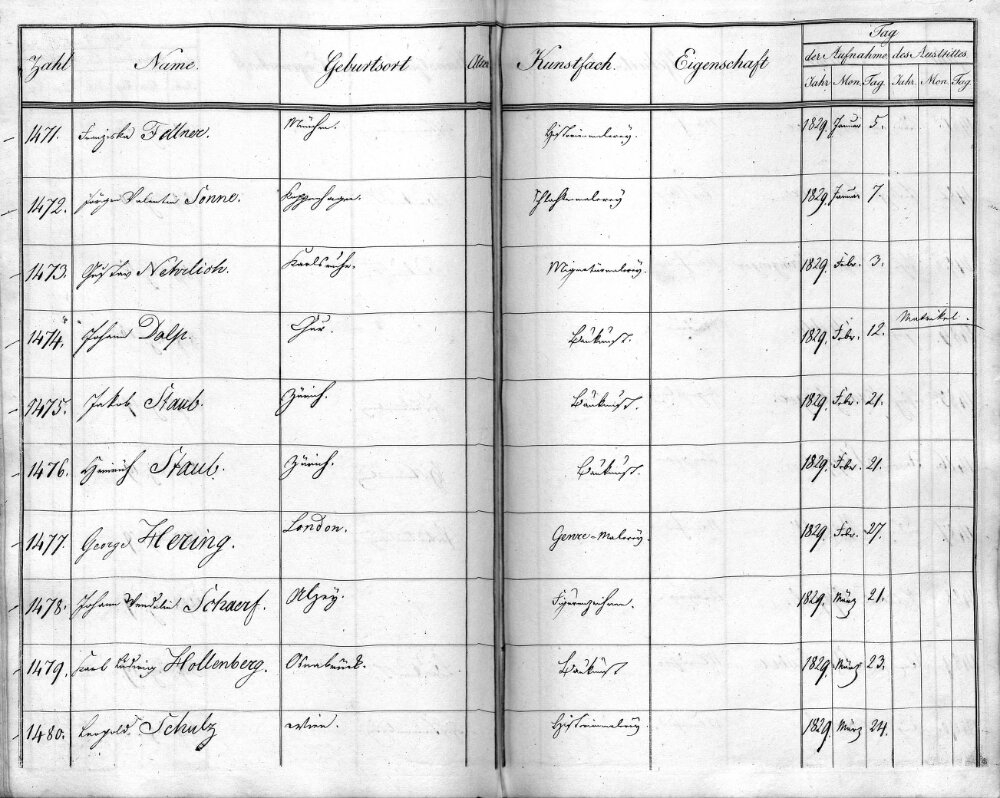 Zahl Name. Geburtsort Alter Kunstfach. Eigenschaft Tag
der Aufnahme des Austrittes
Jahr Mon. Tag. Jahr. Mon. Tag.
1471. Franziska Fellner. München. Historienmalerey. 1829. Januar 5.
1472. Jürgen Valentin Sonne. Koppenhagen. Schlachtenmalerey 1829. Januar 7.
1473. Gustav Nehrlich. Karlsruhe. Miniaturmalerey. 1829. Febr. 3.
1474. Johann Dalp. Chur. Baukunst. 1829. Febr. 12. Matrikel.
1475. Jakob Staub. Zürich. Baukunst. 1829. Febr. 21.
1476. Heinrich Staub. Zürich. Baukunst. 1829. Febr. 21.
1477. George Hering. London. Genre-Malerey. 1829. Febr. 27.
1478. Johann Wendelin Schaerf. Alzey. 1829. März 21.
1479. Karl Ludwig Hollenberg. Osnabrück. Baukunst 1829. März 23.
1480. Leopold Schulz Wien. Historienmalerey. 1829. März 24.